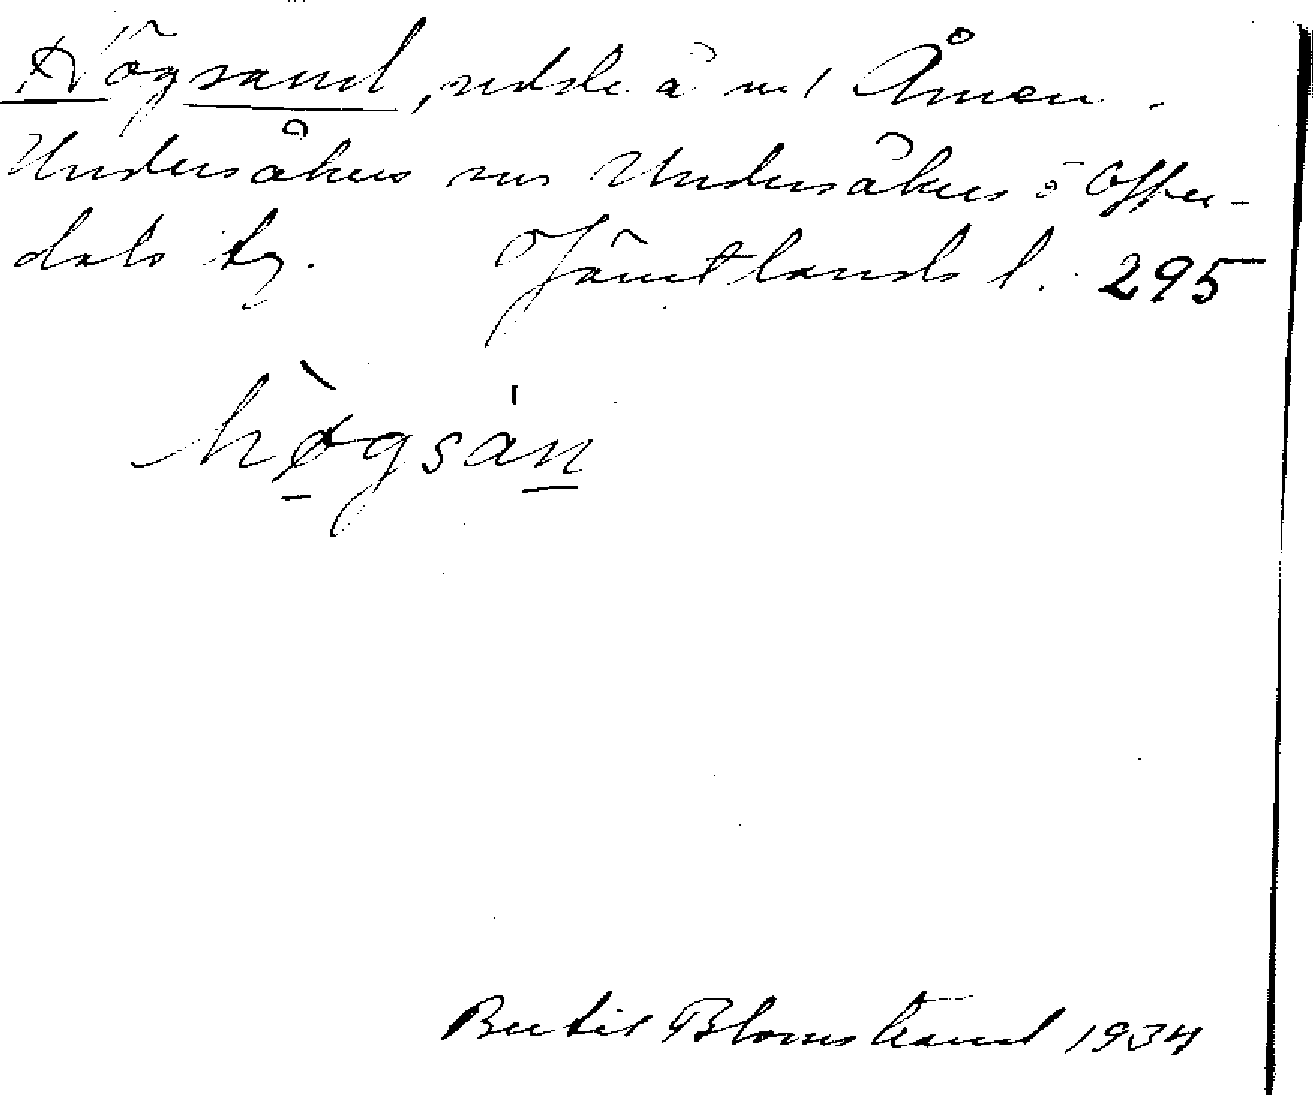 Högsand, udde å nr 1 Ånnen.
Undersåkers sn Undersåkers o Offer-
dals tg. Jämtlands l. 295
hø̀gsán
Bertil Blomstrand 1934